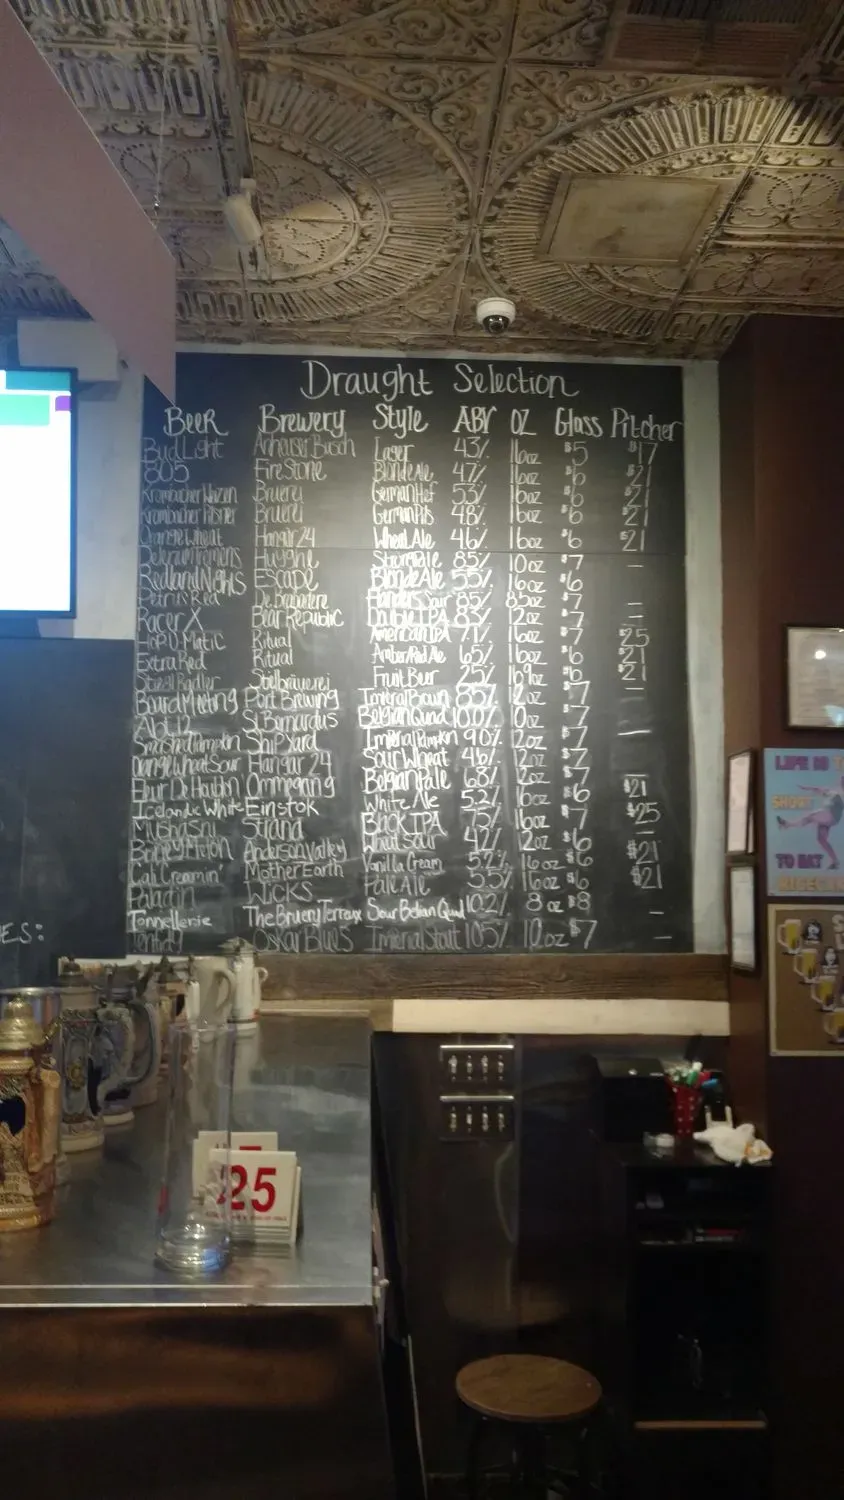 Draught Selection
Beer Brewery Style ABV OZ Glass Pitcher
Bud Light Anhaiser Busch Lager 4.3% 16oz $5 $17
805 FireStone Blonde Ale 4.7% 16oz $6 $21
Krombacher Weizen Bruerei German Hef 5.3% 16oz $6 $21
Krombacher Pilsner Bruerei German Pils 4.8% 16oz $6 $21
Orange Wheat Hangar 24 Wheat Ale 4.6% 16oz $6 $21
Delerium Tremens Huyghe Strong Ale 8.5% 10oz $7 —
Redland Nights Escape Blonde Ale 5.5% 16oz $6
Petrus Red De Brabandere Flanders Sour 8.5% 8.5oz $7 —
Racer X Bear Republic Double IPA 8.3% 12oz $7 —
Hop O Matic Ritual American IPA 7.1% 16oz $7 $25
Extra Red Ritual Amber/Red Ale 6.5% 16oz $6 $21
Stiegl Radler Stieglbrauerei Fruit Beer 2.5% 16.9oz $6 $21
Board Meeting Port Brewing Imperial Brown 8.5% 12oz $7 —
Abt 12 St. Bernardus Belgian Quad 10.0% 10oz $7
Smashed Pumpkin Shipyard Imperial Pumpkin 9.0% 12oz $7 —
Orange Wheat Sour Hangar 24 Sour Wheat 4.6% 12oz $7
Fleur De Houblon Ommegang Belgian Pale 6.8% 12oz $7 —
Icelandic White Einstok White Ale 5.2% 16oz $6 $21
Strand Black IPA 7.5% 16oz $7 $25
Anderson Valley Wheat Sour 4.2% 12oz $6 —
Cali Creamin' Mother Earth Vanilla Cream 5.2% 16oz $6 $21
Paladin Wicks Pale Ale 5.5% 16oz $6 $21
Tonnellerie The Bruery Terreux Sour Belian Quad 10.2% 8oz $8 —
Tenfidy Oskar Blues Imperial Stout 10.5% 10oz $7 —
ES:
25
LIFE IS
SHORT
TO EAT